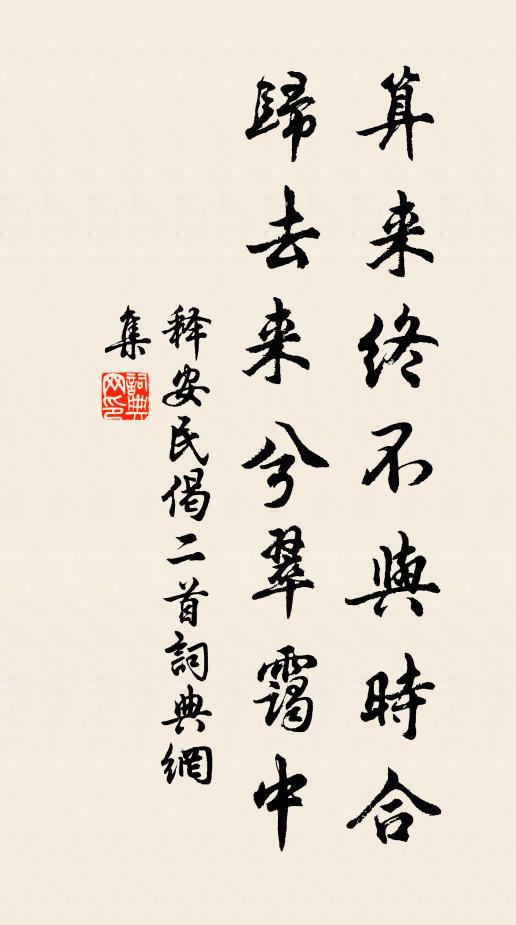 算来终不與時合
歸去来兮翠靄中
释安民偈二首詞典網
集
詞典
网印